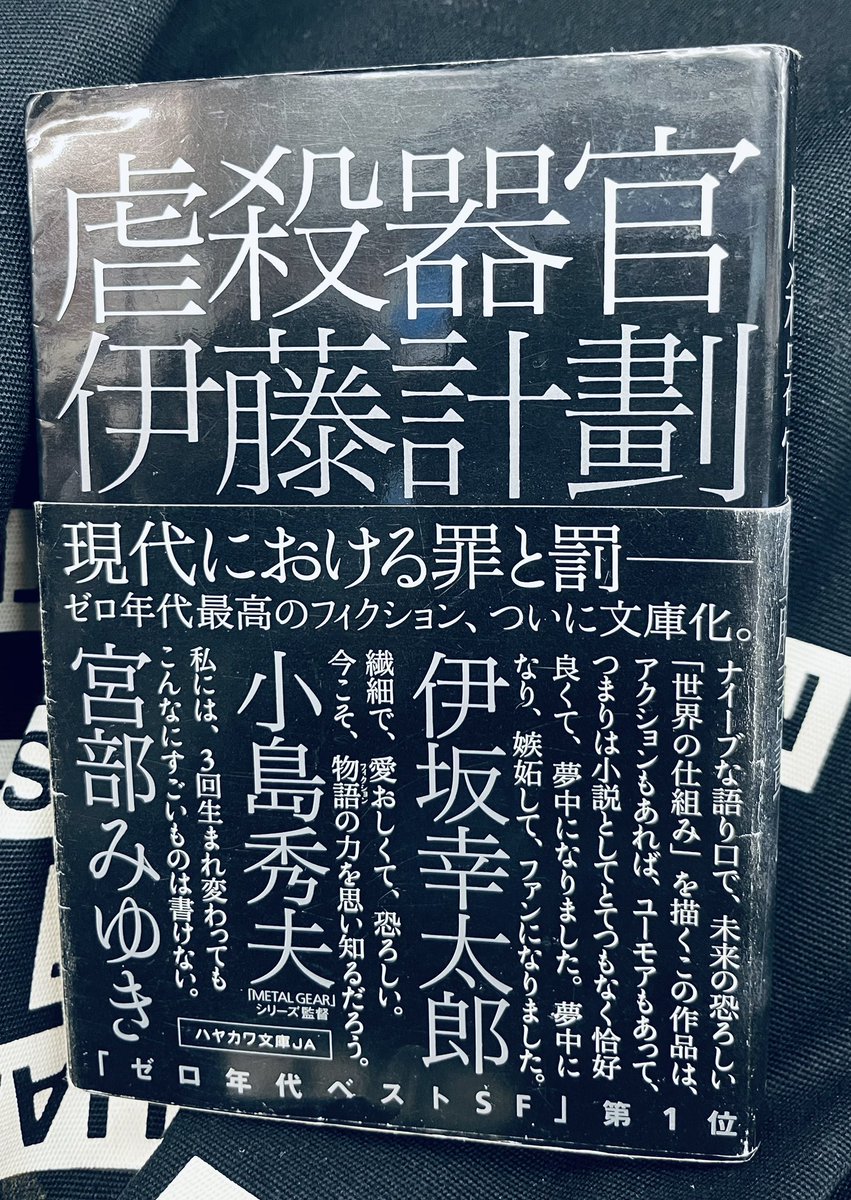 虐殺器官
伊藤計劃
現代における罪と罰――
ゼロ年代最高のフィクション、ついに文庫化。
ナイーブな語り口で、未来の恐ろしい
「世界の仕組み」を描くこの作品は、
アクションもあれば、ユーモアもあって、
つまりは小説としてとてつもなく恰好
良くて、夢中になりました。夢中に
なり、嫉妬して、ファンになりました。
伊坂幸太郎
繊細で、愛おしくて、恐ろしい。
今こそ、物語の力を思い知るだろう。
フィクション
小島秀夫
「METAL GEAR」
シリーズ監督
私には、3回生まれ変わっても
こんなにすごいものは書けない。
宮部みゆき
ハヤカワ文庫JA
「ゼロ年代ベストSF」第1位